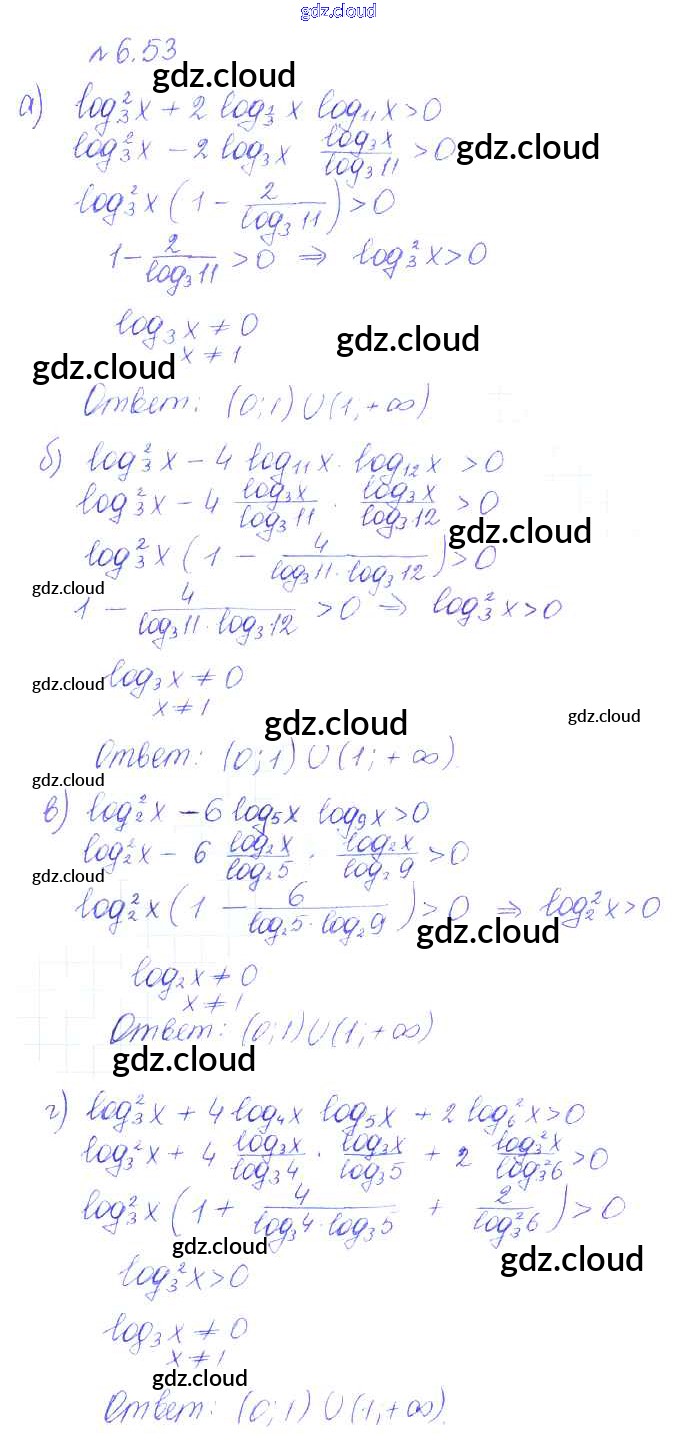 gdz.cloud
№6.53
gdz.cloud
а) log₃²x + 2 log_{1/3} x log₁₁x > 0
log₃²x − 2 log₃x log₃x/log₃11 > 0 gdz.cloud
log₃²x (1 − 2/log₃11) > 0
1 − 2/log₃11 > 0 ⇒ log₃²x > 0
log₃x ≠ 0
gdz.cloud
gdz.cloud x ≠ 1
Ответ: (0;1)∪(1;+∞)
б) log₃²x − 4 log₁₁x · log₁₂x > 0
log₃²x − 4 log₃x/log₃11 · log₃x/log₃12 > 0
gdz.cloud
log₃²x (1 − 4/(log₃11·log₃12)) > 0
gdz.cloud
1 − 4/(log₃11·log₃12) > 0 ⇒ log₃²x > 0
gdz.cloud log₃x ≠ 0
x ≠ 1
gdz.cloud gdz.cloud
Ответ: (0;1)∪(1;+∞).
gdz.cloud
в) log₂²x − 6 log₅x log₉x > 0
log₂²x − 6 log₂x/log₂5 · log₂x/log₂9 > 0
gdz.cloud
log₂²x (1 − 6/(log₂5·log₂9)) > 0 ⇒ log₂²x > 0
gdz.cloud
log₂x ≠ 0
x ≠ 1
Ответ: (0;1)∪(1;+∞)
gdz.cloud
г) log₃²x + 4 log₄x log₅x + 2 log₆²x > 0
log₃²x + 4 log₃x/log₃4 · log₃x/log₃5 + 2 log₃²x/log₃²6 > 0
log₃²x (1 + 4/(log₃4·log₃5) + 2/log₃²6) > 0
gdz.cloud gdz.cloud
log₃²x > 0
log₃x ≠ 0
x ≠ 1
gdz.cloud
Ответ: (0;1)∪(1,+∞).